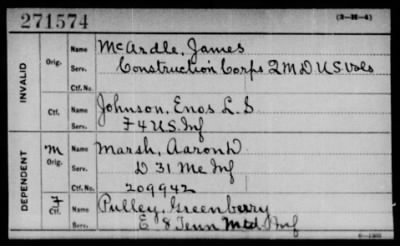 271574
(3-H-4)
INVALID
Orig.
Name McArdle, James
Serv. Construction Corps 2 M D U S Vols
Ctf. No.
Ctf.
Name Johnson, Enos L. S
Serv. F 4 U.S. Inf
DEPENDENT
M
Orig.
Name Marsh, Aaron D
Serv. D 31 Me Inf
Ctf. No. 209942
F
Ctf.
Name Pulley, Greenberry
Serv. E 8 Tenn Mtd. Inf